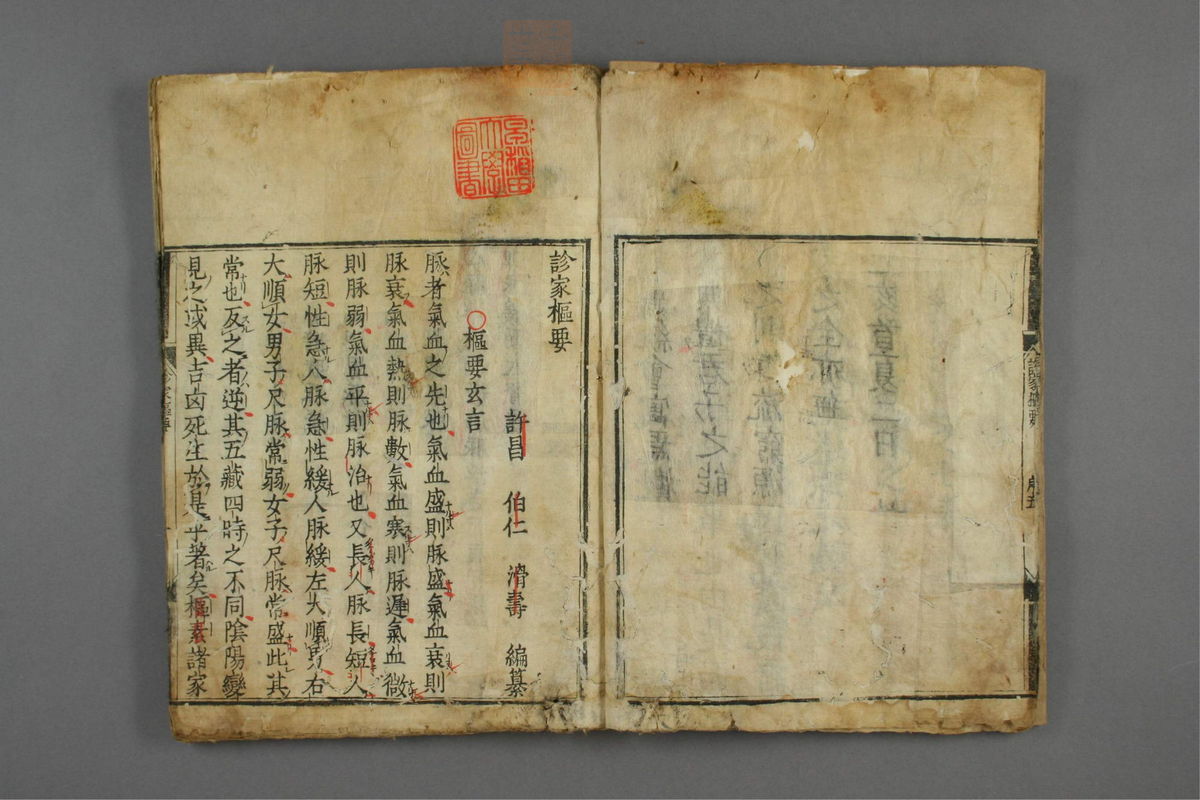 診家樞要
許昌 伯仁 滑壽 編纂
○樞要玄言
脉者氣血之先也氣血盛則脉盛氣血衰則
脉衰氣血熱則脉數氣血寒則脉遲氣血微
則脉弱氣血平則脉治也又長人脉長短人
脉短性急人脉急性緩人脉緩左大順男右
大順女男子尺脉常弱女子尺脉常盛此其
常也反之者逆其五藏四時之不同陰陽變
見之或異吉凶死生於是乎著矣樞素諸家
早稲田
大學
圖書
診家樞要
序五